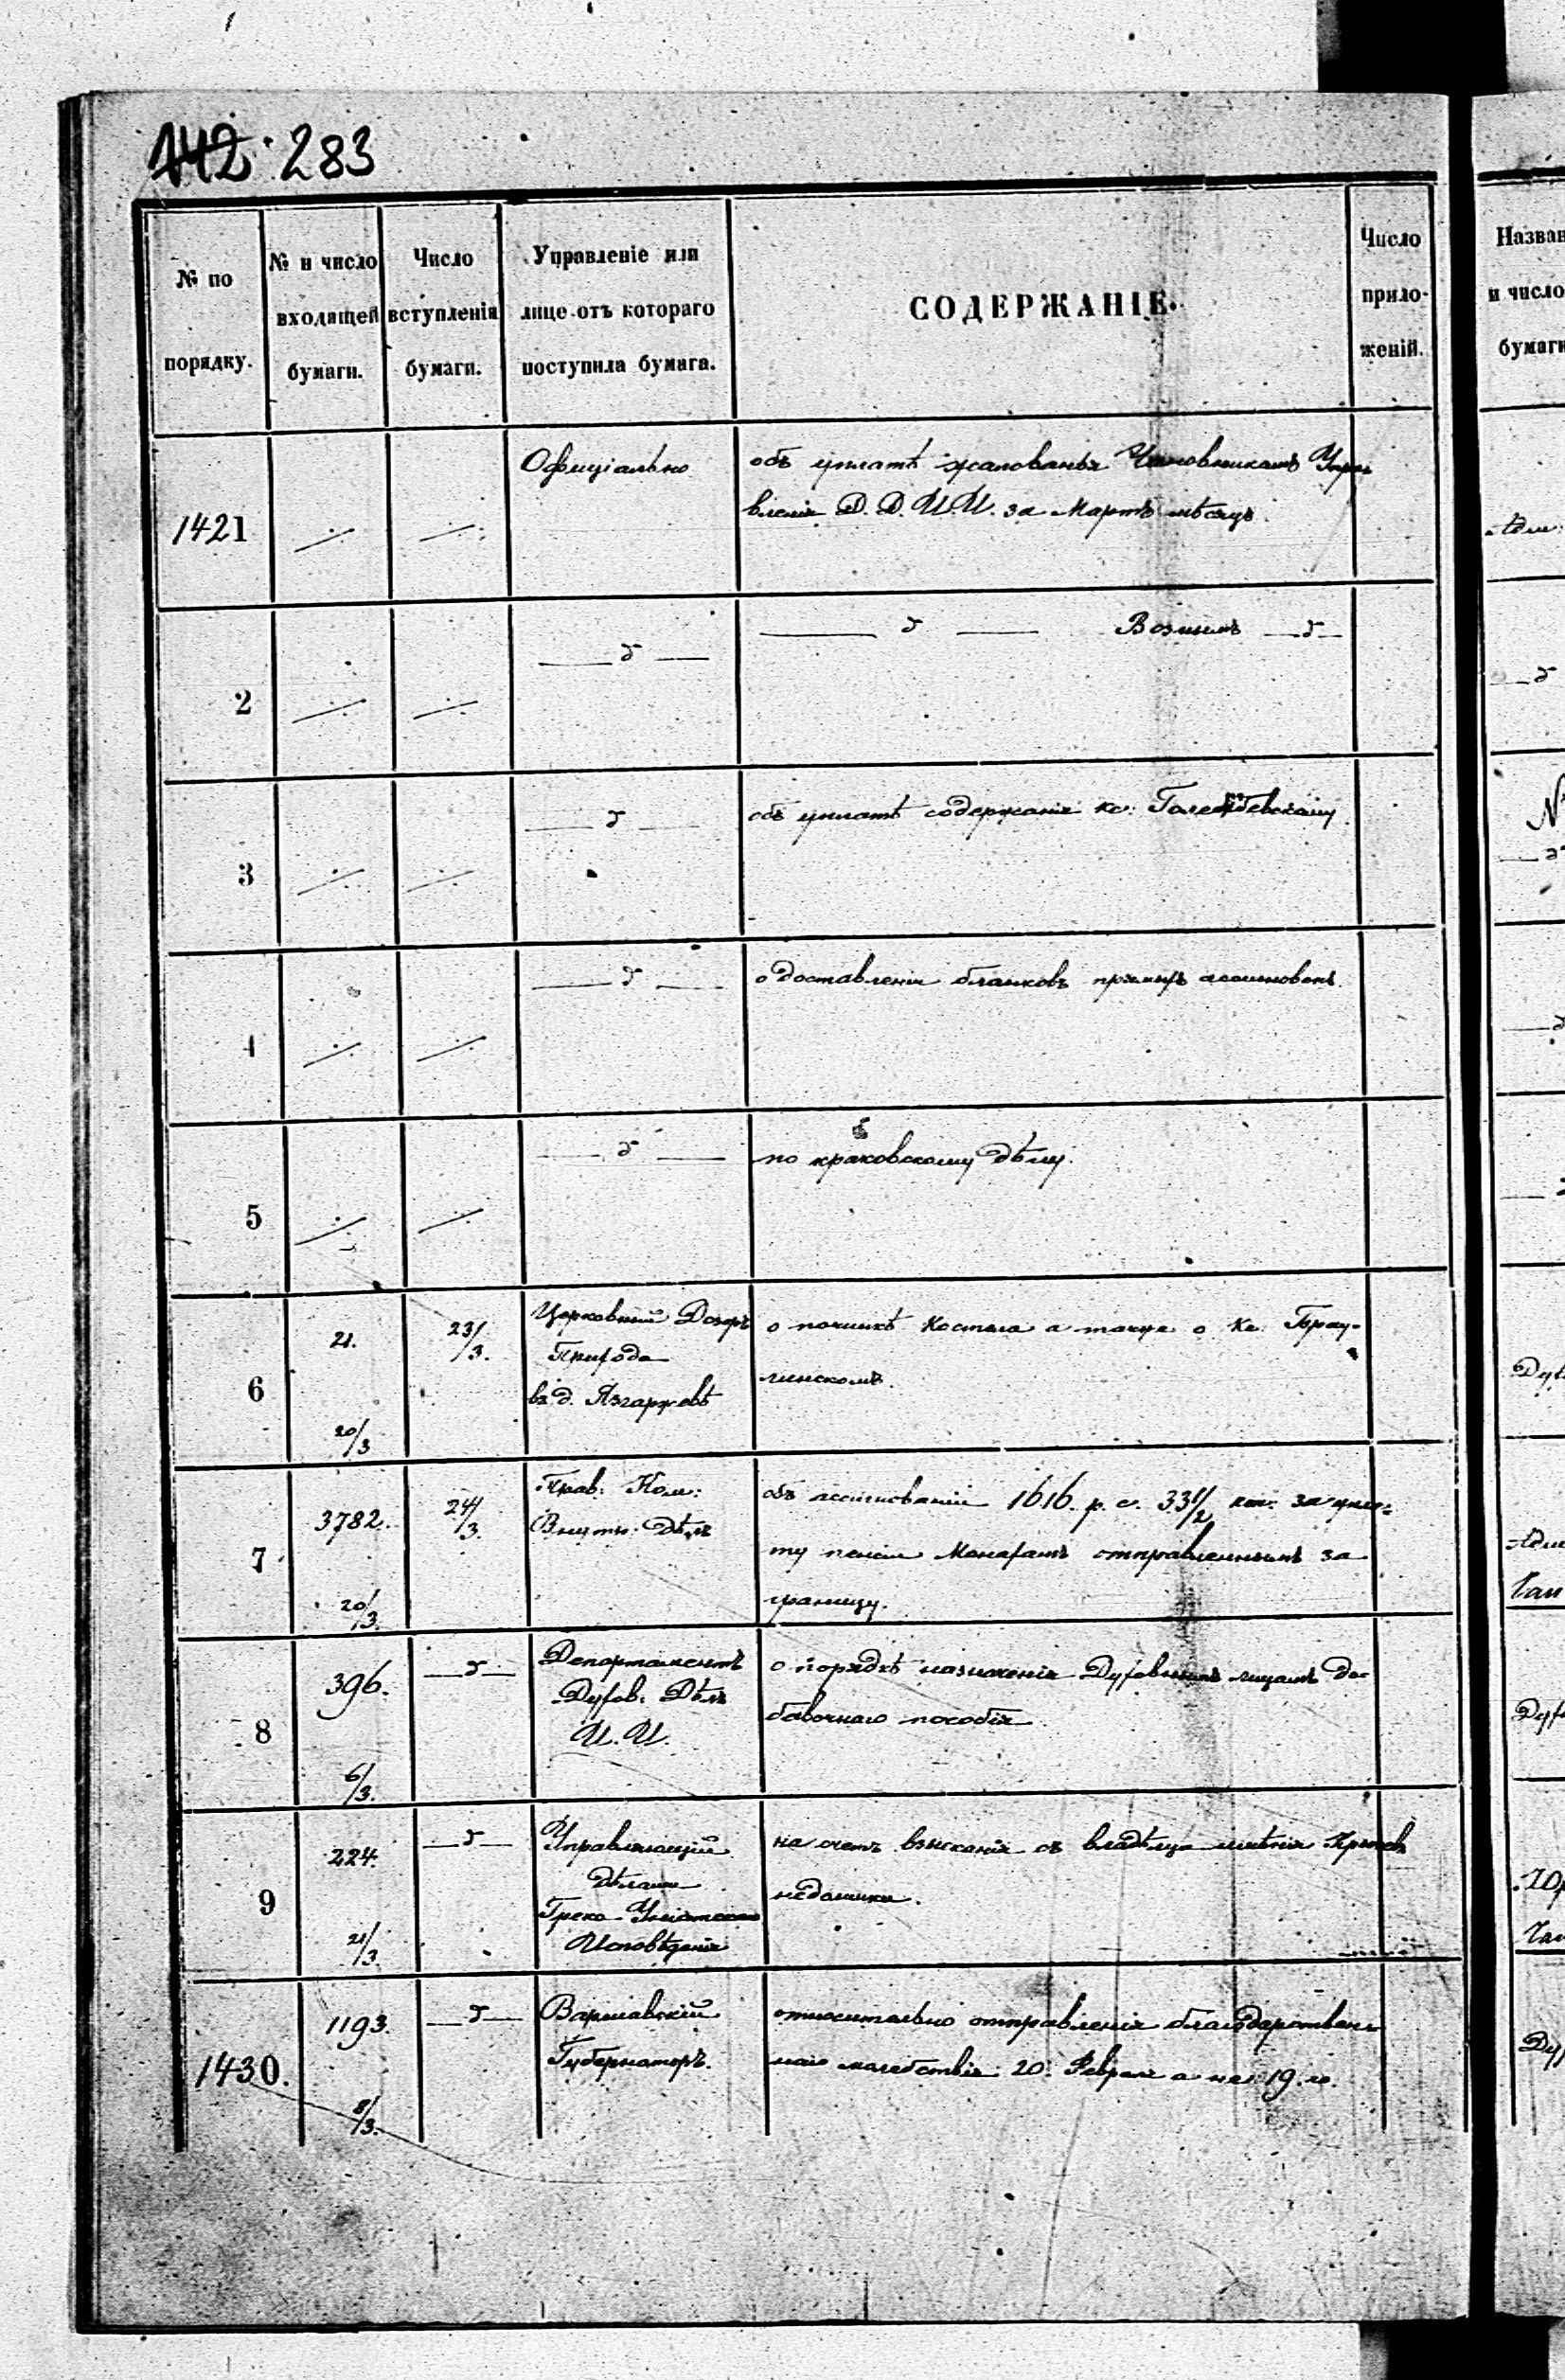 142 283
№ по порядку.
№ и число входящей бумаги.
Число вступленія бумаги.
Управленіе или лице отъ котораго поступила бумага.
СОДЕРЖАНІЕ.
Число приложеній.
1421
Офиціально
объ уплатѣ жалованья Чиновникамъ Упра
вленія Д. Д. И. И. за Мартъ мѣсяцъ.
2
д
д
Вознымъ
д
3
д
объ уплатѣ содержанія кс:
4
д
о доставленіи бланковъ
5
д
по краковскому дѣлу.
6
21.
20/3
23/3.
Церковный Дозоръ
Прихода
въ д. Язгаржевѣ
о починкѣ Костела а также о Кс.
линскомъ.
7
3782.
20/3.
24/3.
Прав: Ком:
Внутр: Дѣлъ
объ ассигнованіи 1616. р. с. 33 1/2 коп: за упла-
ту пенсіи Монахамъ отправленнымъ за
границу.
8
396.
6/3.
д
Департаментъ
Духов: Дѣлъ
И. И.
о порядкѣ назначенія Духовнымъ лицамъ до-
бавочнаго пособія
9
224.
21/3.
д
Управляющій
дѣлами
Греко-Уніатскаго
Исповѣданія
на счетъ взысканія съ владѣльца имѣнія
недоимки.
1430.
1193.
8/3.
д
Варшавскій
Губернаторъ.
относительно отправленія благодарствен
наго молебствія 20. Февраля а не 19. го.
Назван
и число
бумаги